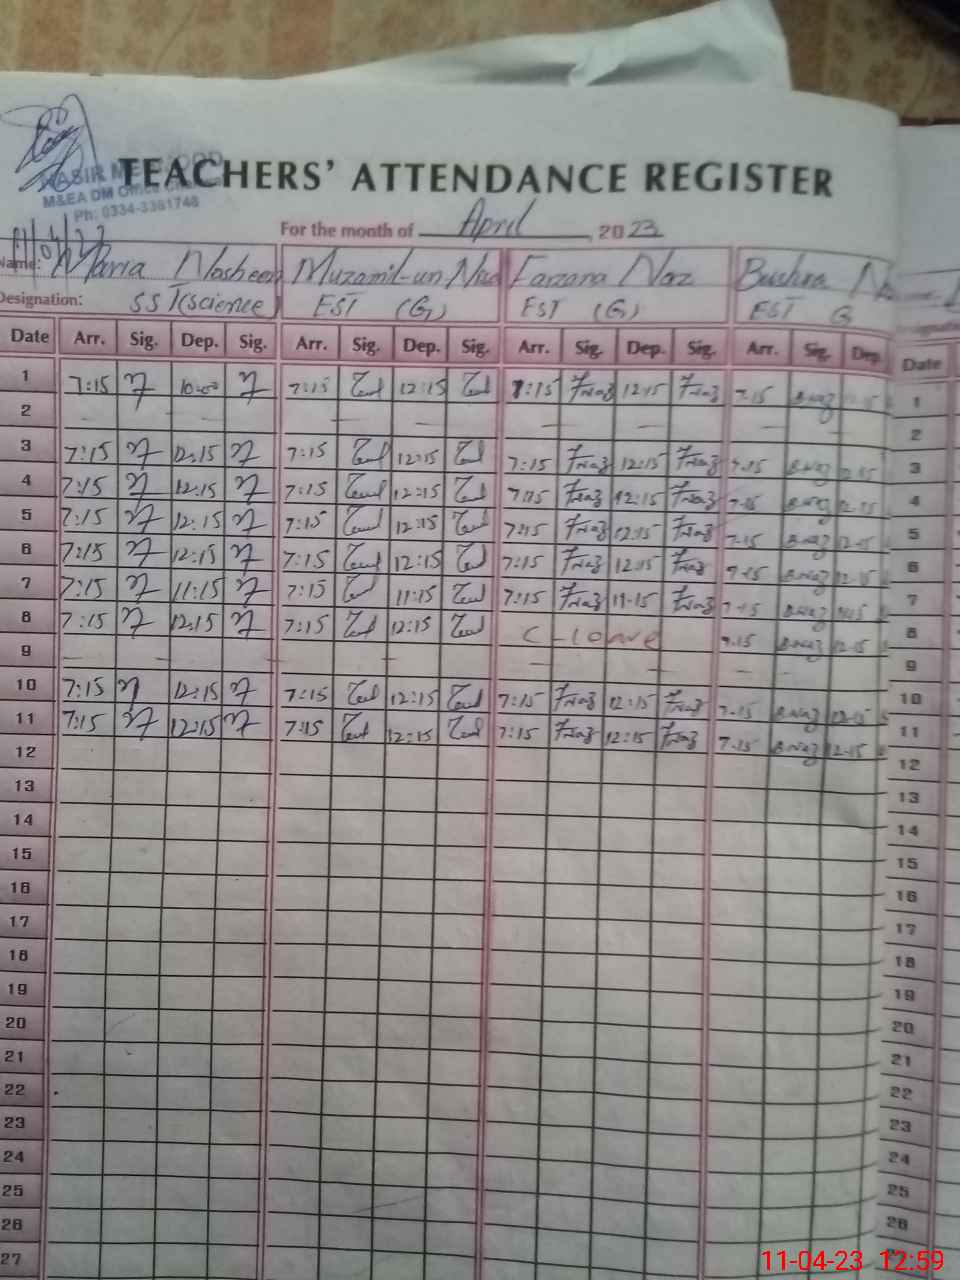 TEACHERS' ATTENDANCE REGISTER
M&EA DM Office
Ph: 0334-3361748
For the month of April, 2023
Name: Maria Nosheen Muzamil-un Farzana Naz Bushra
Designation: SST(science) EST (G) EST (G) EST G
Date Arr. Sig. Dep. Sig. Arr. Sig. Dep. Sig. Arr. Sig. Dep. Sig. Arr. Sig. Dep. Date
1 7:15 10:00 7:15 12:15 7:15 Fnaz 12:15 Fnaz 7:15 B.Naz 12:15 1
2 — — — — — — — — — — 2
3 7:15 12:15 7:15 12:15 7:15 Fnaz 12:15 Fnaz 7:15 B.Naz 12:15 3
4 7:15 12:15 7:15 12:15 7:15 Fnaz 12:15 Fnaz 7:15 B.Naz 12:15 4
5 7:15 12:15 7:15 12:15 7:15 Fnaz 12:15 Fnaz 7:15 B.Naz 12:15 5
6 7:15 12:15 7:15 12:15 7:15 Fnaz 12:15 Fnaz 7:15 B.Naz 12:15 6
7 7:15 11:15 7:15 11:15 7:15 Fnaz 11:15 Fnaz 7:15 B.Naz 11:15 7
8 7:15 12:15 7:15 12:15 C-leave 7:15 B.Naz 12:15 8
9 — — — — — — — — 9
10 7:15 12:15 7:15 12:15 7:15 Fnaz 12:15 Fnaz 7:15 B.Naz 12:15 10
11 7:15 12:15 7:15 12:15 7:15 Fnaz 12:15 Fnaz 7:15 B.Naz 12:15 11
12 12
13 13
14 14
15 15
16 16
17 17
18 18
19 19
20 20
21 21
22 22
23 23
24 24
25 25
26 26
27
11-04-23 12:59